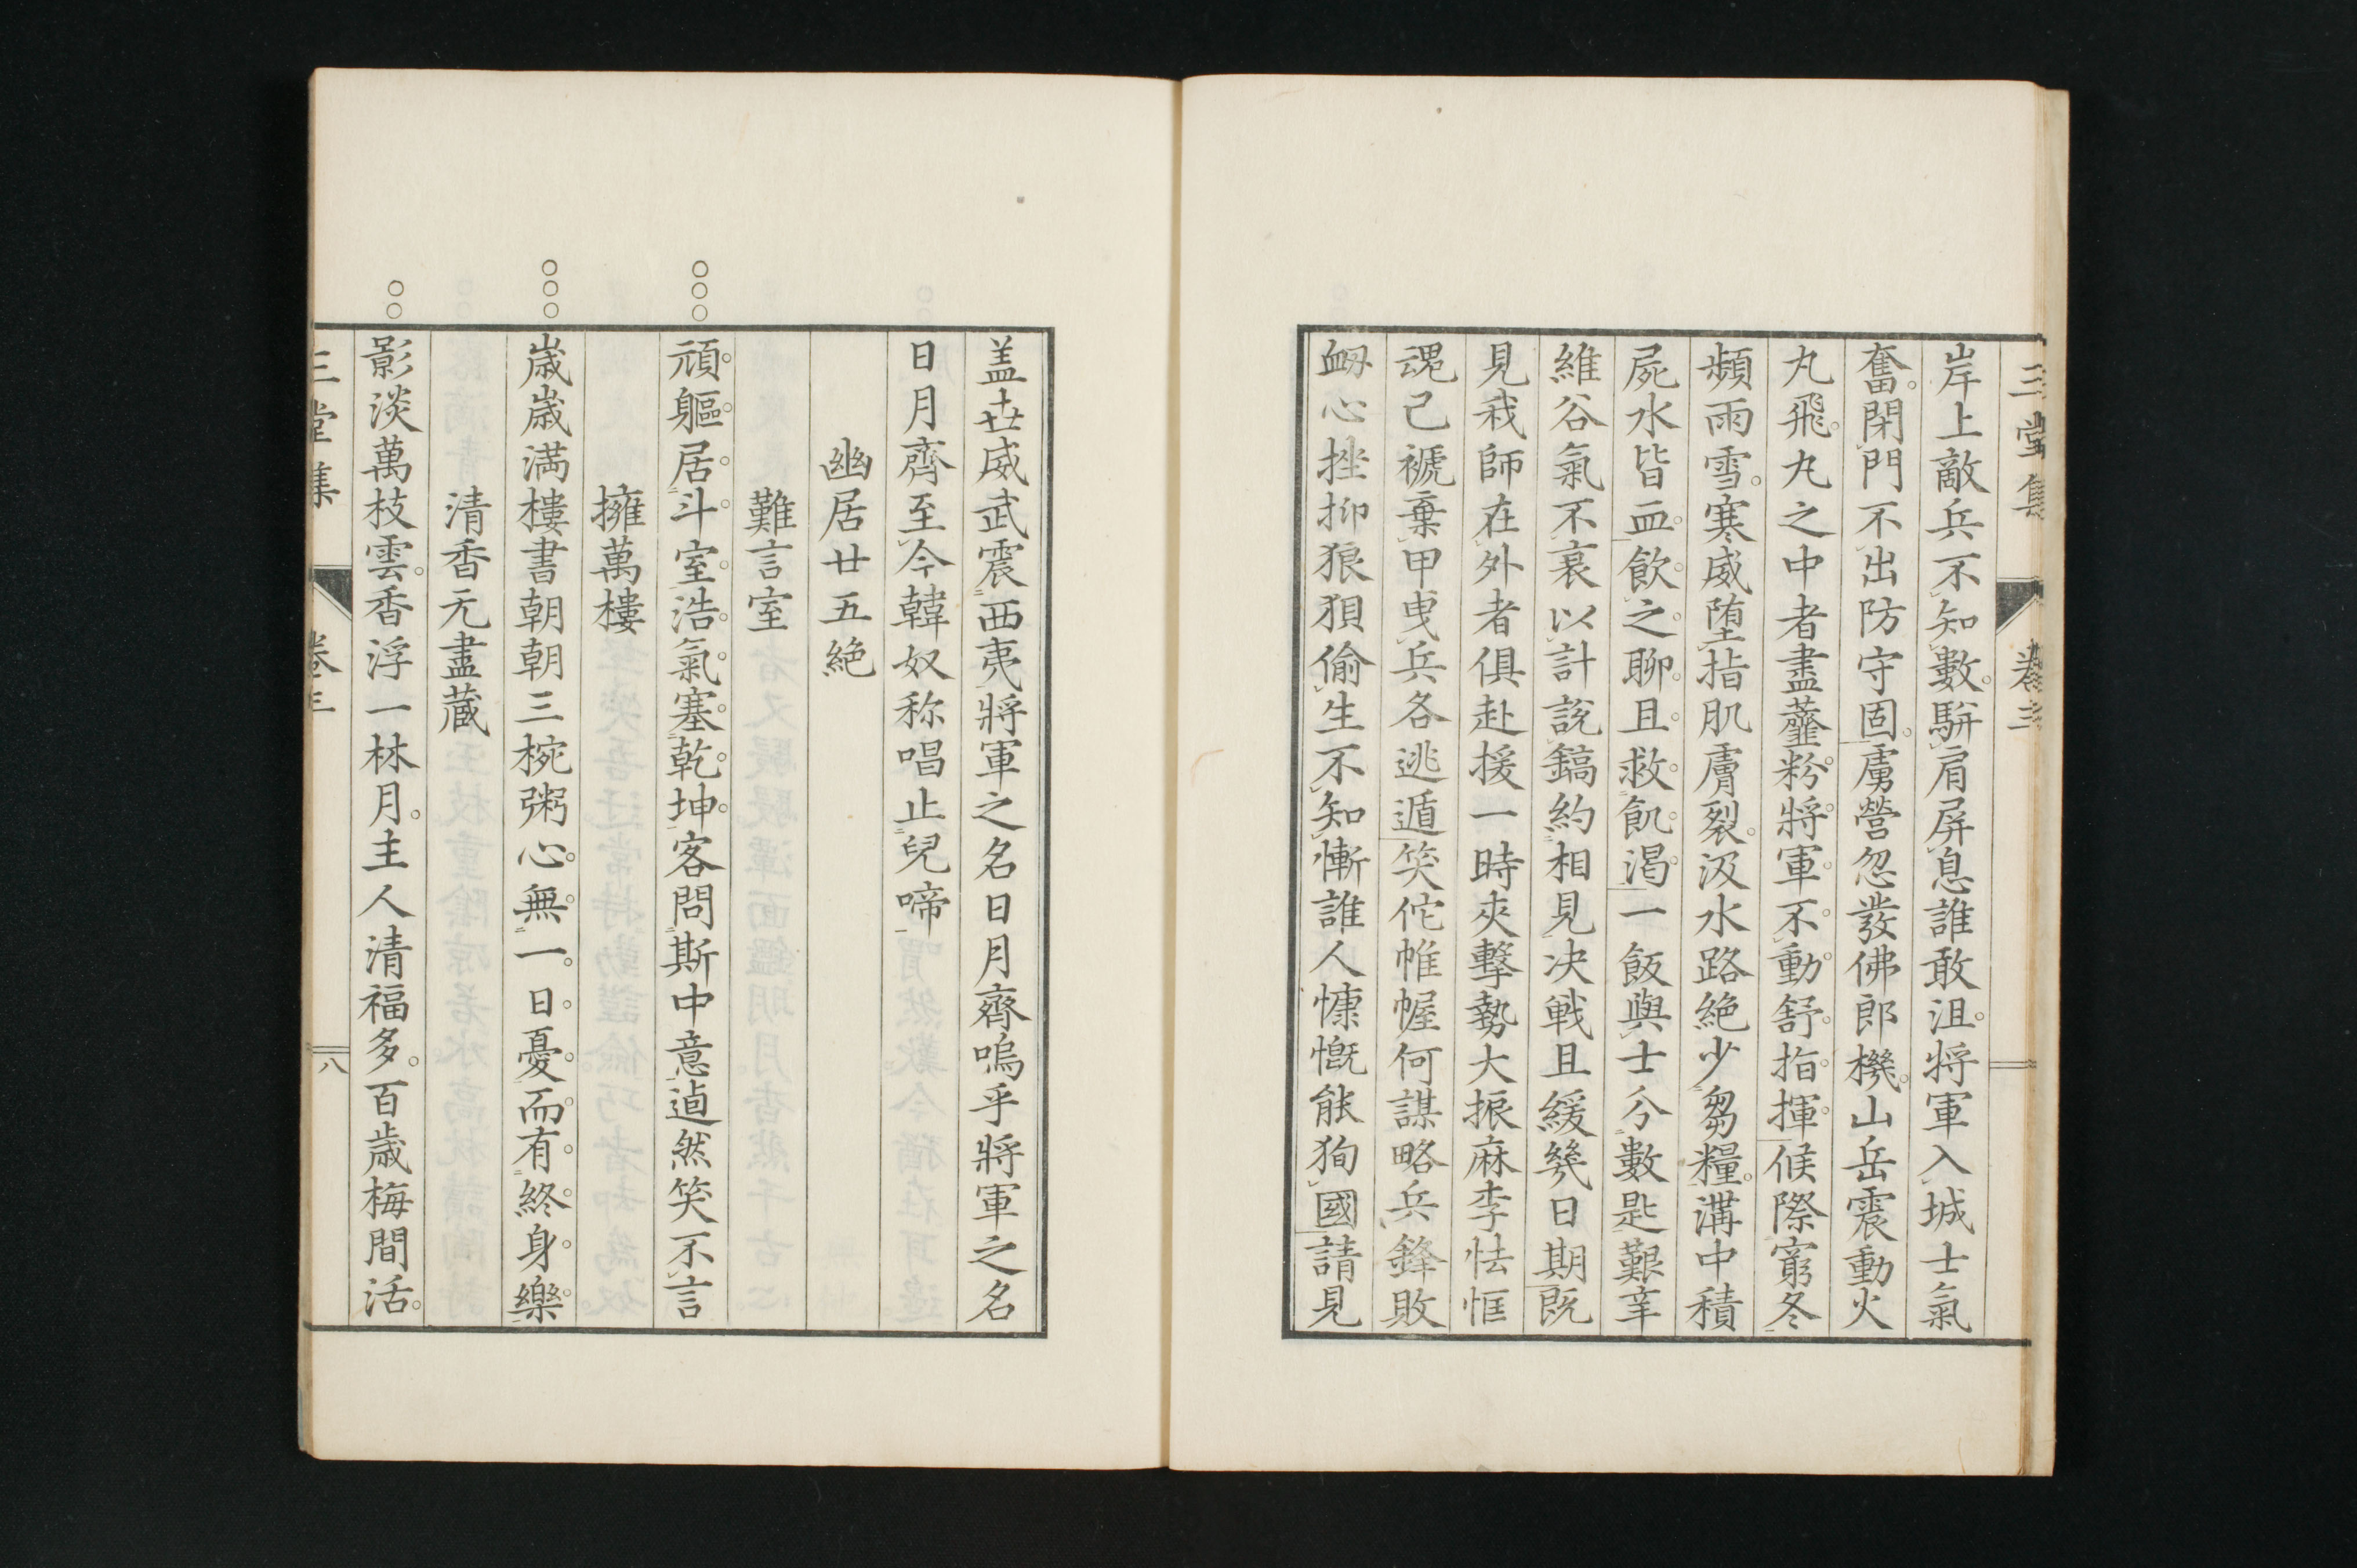 三堂集 卷三
岸上敵兵不知數駢肩屏息誰敢沮將軍入城士氣
奮閉門不出防守固虜營忽發佛郎機山岳震動火
丸飛丸之中者盡虀粉將軍不動舒指揮候際窮冬
頻雨雪寒威墮指肌膚裂汲水路絕少芻糧溝中積
屍水皆血飲之聊且救飢渴一飯與士分數匙艱辛
維谷氣不衰以計說鎬約相見決戰且緩幾日期既
見我師在外者俱赴援一時夾擊勢大振麻李怯恇
魂已褫棄甲曳兵各逃遁笑佗帷幄何謀略兵鋒敗
衂心挫抑狼狽偷生不知慚誰人慷慨能狥國請見
蓋世威武震西夷將軍之名日月齊嗚乎將軍之名
日月齊至今韓奴称唱止兒啼
幽居廿五絕
難言室
頑軀居斗室浩氣塞乾坤客問斯中意逌然笑不言
擁萬樓
歲歲滿樓書朝朝三椀粥心無一日憂而有終身樂
清香无盡藏
影淡萬枝雲香浮一林月主人清福多百歲梅間活
三堂集 卷三 八